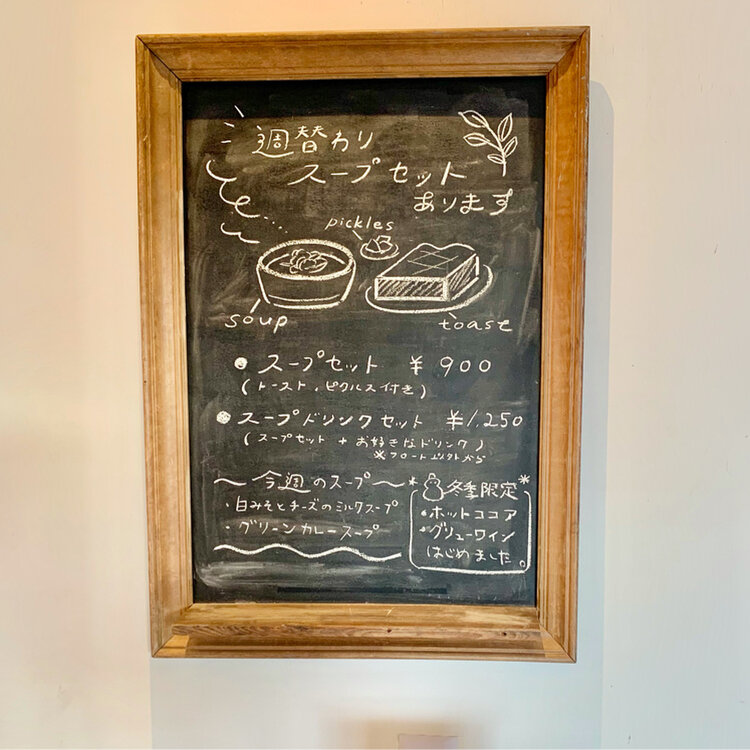 週替わり
スープセット
あります
pickles
soup
toast
● スープセット ¥900
(トースト、ピクルス付き)
● スープドリンクセット ¥1,250
(スープセット + お好きなドリンク)
※フロート以外から
〜今週のスープ〜
・白みそとチーズのミルクスープ
・グリーンカレースープ
*冬季限定*
・ホットココア
・グリューワイン
はじめました。